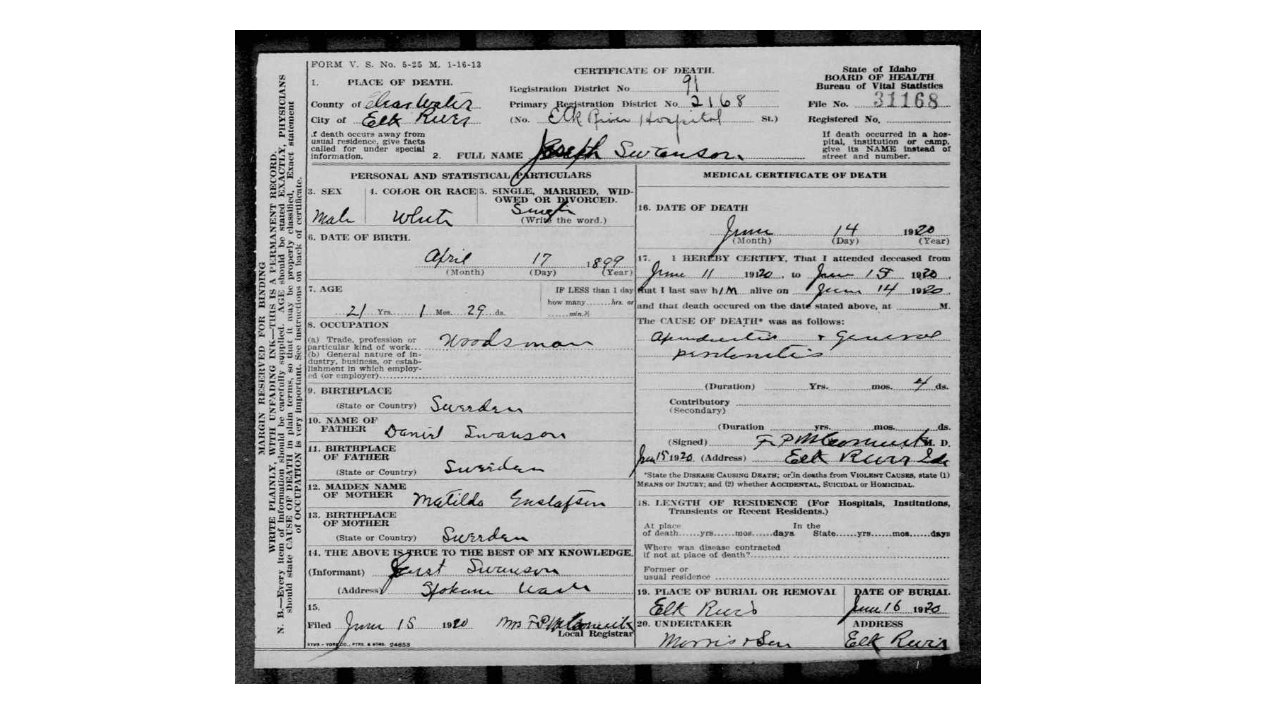 FORM V. S. No. 5-25 M. 1-16-13
CERTIFICATE OF DEATH.
State of Idaho
BOARD OF HEALTH
Bureau of Vital Statistics
File No. 31168
Registered No.
1. PLACE OF DEATH.
Registration District No 91
County of Clearwater
Primary Registration District No 2168
City of Elk River
(No. Elk River Hospital St.)
If death occurs away from
usual residence, give facts
called for under special
information.
If death occurred in a hos-
pital, institution or camp,
give its NAME instead of
street and number.
2. FULL NAME Joseph Swanson
PERSONAL AND STATISTICAL PARTICULARS
3. SEX
Male
4. COLOR OR RACE
White
5. SINGLE, MARRIED, WID-
OWED OR DIVORCED.
Single
(Write the word.)
6. DATE OF BIRTH.
April 17 1899
(Month) (Day) (Year)
7. AGE
IF LESS than 1 day
how many hrs. or
min.?
21 Yrs. 1 Mos. 29 ds.
8. OCCUPATION
(a) Trade, profession or
particular kind of work... Woodsman
(b) General nature of in-
dustry, business, or estab-
lishment in which employ-
ed (or employer)
9. BIRTHPLACE
(State or Country) Sweden
10. NAME OF
FATHER Daniel Swanson
11. BIRTHPLACE
OF FATHER
(State or Country) Sweden
12. MAIDEN NAME
OF MOTHER Matilda Gustafson
13. BIRTHPLACE
OF MOTHER
(State or Country) Sweden
14. THE ABOVE IS TRUE TO THE BEST OF MY KNOWLEDGE.
(Informant) Swanson
(Address) Spokane Wash
15.
Filed June 15 1920 Mrs F P McCormick
Local Registrar
MEDICAL CERTIFICATE OF DEATH
16. DATE OF DEATH
June 14 1920
(Month) (Day) (Year)
17. I HEREBY CERTIFY, That I attended deceased from
June 11 1920, to June 15 1920,
that I last saw h/M alive on June 14 1920
and that death occured on the date stated above, at M.
The CAUSE OF DEATH* was as follows:
Apendicitis + General
peritonitis
(Duration) Yrs. mos. 4 ds.
Contributory
(Secondary)
(Duration) yrs. mos. ds.
(Signed) F. P. McCormick M. D.
June 15 1920 (Address) Elk River Ida
*State the DISEASE CAUSING DEATH; or in deaths from VIOLENT CAUSES, state (1)
MEANS OF INJURY; and (2) whether ACCIDENTAL, SUICIDAL or HOMICIDAL.
18. LENGTH OF RESIDENCE (For Hospitals, Institutions,
Transients or Recent Residents.)
At place In the
of death yrs. mos. days State yrs. mos. days
Where was disease contracted
if not at place of death?
Former or
usual residence
19. PLACE OF BURIAL OR REMOVAL
Elk River
DATE OF BURIAL
June 16 1920
20. UNDERTAKER
Morris & Son
ADDRESS
Elk River
MARGIN RESERVED FOR BINDING
WRITE PLAINLY, WITH UNFADING INK—THIS IS A PERMANENT RECORD.
N. B.—Every item of information should be carefully supplied. AGE should be stated EXACTLY, PHYSICIANS
should state CAUSE OF DEATH in plain terms, so that it may be properly classified. Exact statement
of OCCUPATION is very important. See instructions on back of certificate.